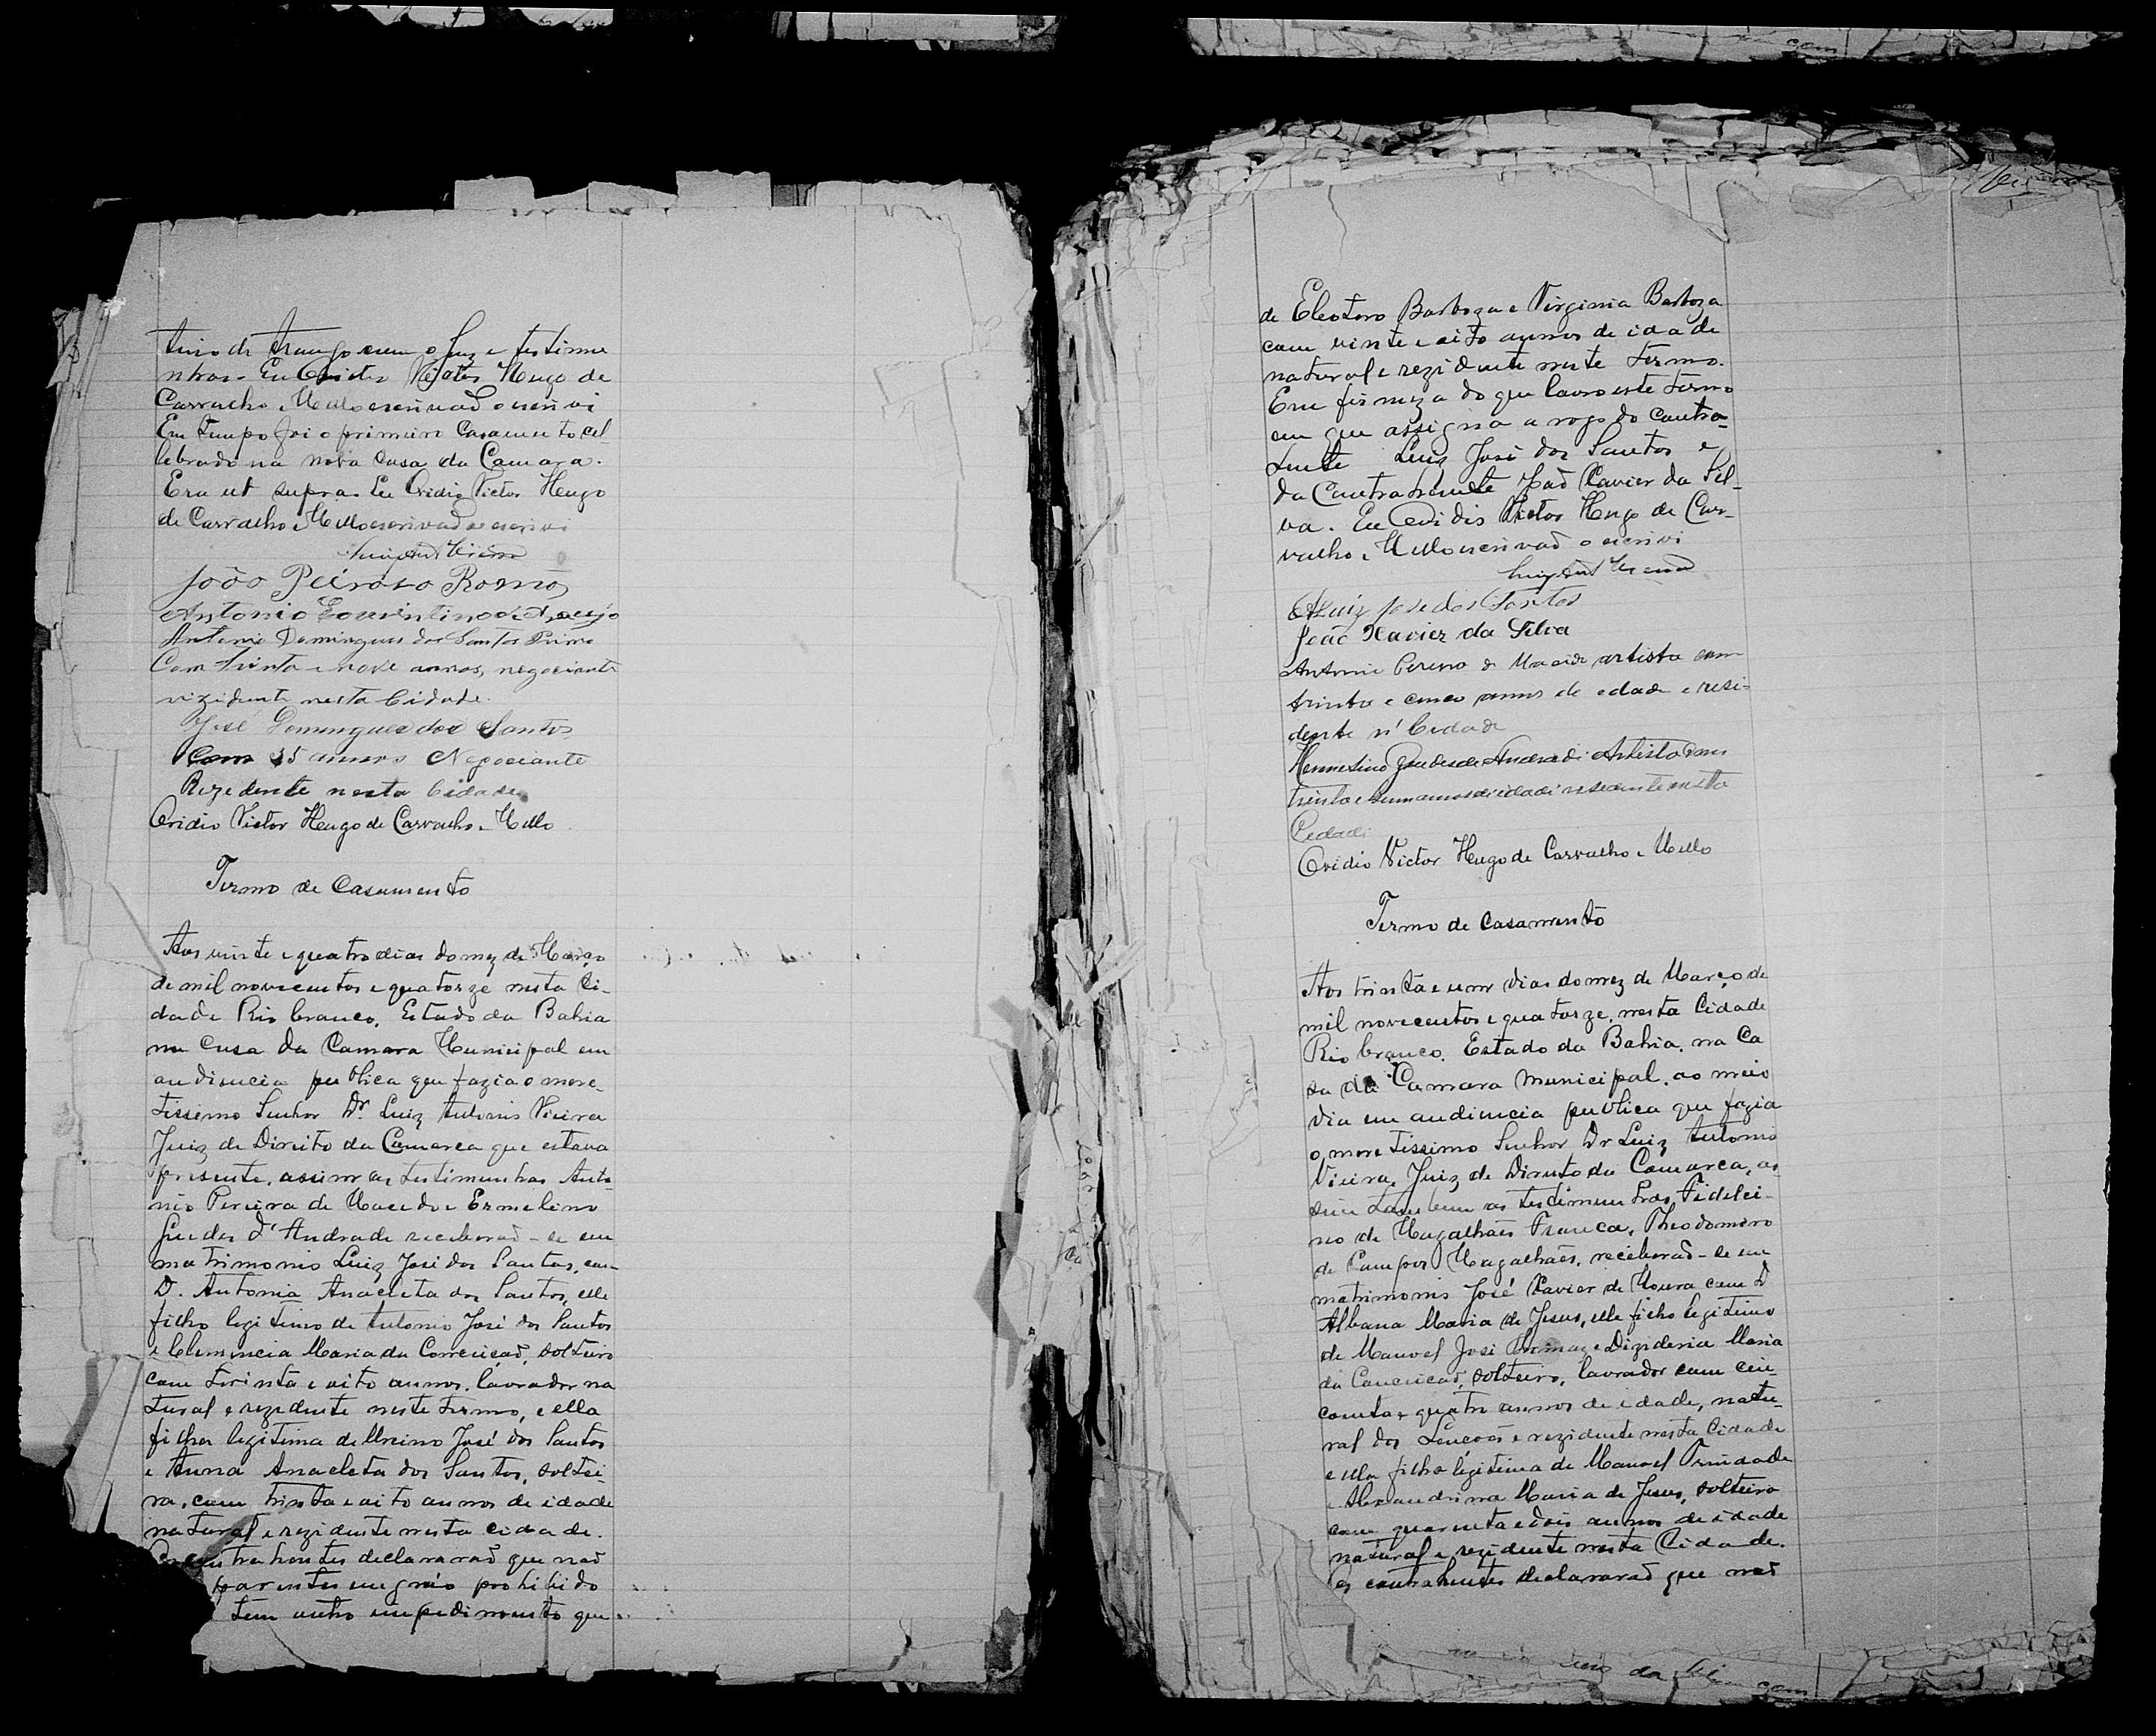 tino de Araujo com o Juiz e testimu
nhas. Eu Ovidio Victor Hugo de
Carvalho e Mello escrivaõ o escrivi
Em tempo foi o primeiro Casamento cel
lebrado na nova Casa da Camara.
Era ut supra. Eu Ovidio Victor Hugo
de Carvalho e Mello escrivaõ o escrivi
Luiz Ant Vieira
João Peixoto Romão
Antonio Tourintino de Araujo
Antonio Domingues dos Santos Primo
Com trinta e nove annos, negociante
rizidente nesta Cidade.
José Domingues dos Santos
Com 35 annos Negociante
Rezedente nesta Cidade
Ovidio Victor Hugo de Carvalho e Mello
Termo de Casamento
Aos vinte e quatro dias do mez de Março
de mil novecentos e quatorze nesta Ci-
dade Rio branco, Estado da Bahia
na Casa da Camara Municipal em
audiencia publica que fazia o mere-
tissimo Senhor Dr. Luiz Antonio Vieira
Juiz de Direito da Comarca que estava
presente, assim as testimunhas Anto-
nio Pereira de Macedo e Ermelino
Guedes d'Andrade receberaõ-se em
matrimonio Luiz José dos Santos, com
D. Antonia Anacleta dos Santos, elle
filho legitimo de Antonio José dos Santos
e Clemencia Maria da Conceiçaõ, solteiro
com trinta e oito annos, lavrador na
tural e rezidente neste termo, e ella
filha legitima de José dos Santos
e Anna Anacleta dos Santos, soltei-
ra, com trinta e oito annos de idade
natural e rezidente nesta cidade.
Os contrahentes declararaõ que naõ
parentes em gráo prohibido
tem outro impedimento que
de Eleotero Barboza e Virginia Barboza
com vinte e oito annos de idade
natural e rezidente neste termo.
Em firmeza do que lavro este termo
em que assigna a rogo do contra-
hente Luiz José dos Santos e
da Contrahente Joaõ Xavier da Sil-
va. Eu Ovidio Victor Hugo de Car-
valho e Mello escrivaõ o escrivi
Luiz Ant Vieira
Luiz José dos Santos
João Xavier da Silva
Antonio Pereira de Macedo artista com
trinta e cinco annos de edade e resi-
dente n' Cidade
Hermelino Guedes de Andrade Artista com
trinta e hum annos de idade residente nesta
Cidade
Ovidio Victor Hugo de Carvalho e Mello
Termo de Casamento
Aos trinta e um dias do mez de Março de
mil novecentos e quatorze, nesta Cidade
Rio branco, Estado da Bahia, na Ca
sa da Camara Municipal, ao meio
dia em audiencia publica que fazia
o meretissimo Senhor Dr Luiz Antonio
Vieira, Juiz de Direito da Comarca, as
sim tambem as testimunhas, Fidelci-
no de Magalhães Franca, Theodomiro
de Campos Magalhães, receberaõ-se em
matrimonio José Xavier de Moura com D
Albana Maria de Jesus, elle filho legitimo
de Manoel José e Dizideria Maria
da Conceicaõ, solteiro, lavrador com cin-
coenta e quatro annos de idade, natu-
ral dos Lençoes e rezidente nesta Cidade
e ella filha legitima de Manoel Trindade
e Alexandrina Maria de Jesus, solteira
com quarenta e dois annos de idade
natural e rezidente nesta Cidade.
Os contrahentes declararaõ que naõ